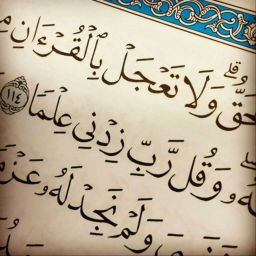 ٱلْحَقُّ ۗ وَلَا تَعْجَلْ بِٱلْقُرْءَانِ مِن
وَقُل رَّبِّ زِدْنِى عِلْمًا ١١٤
وَلَمْ نَجِدْ لَهُۥ عَزْمًا